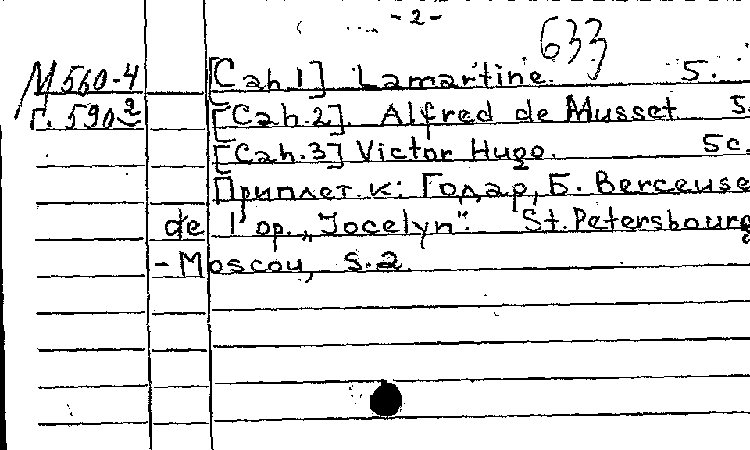 - 2 -
633
М 560-4 [Cah.1] Lamartine. 5.
Г. 590 2 [Cah.2]. Alfred de Musset 5.
[Cah.3] Victor Hugo. 5с.
Приплет. к: Годар, Б. Berceuse
de l'op. „Jocelyn". St. Petersbourg
- Moscou, S.2.